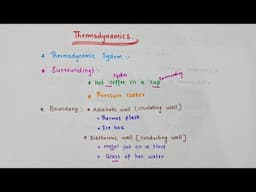 Thermodynamics.
* Thermodynamic System :-
* Surroundings :-
System Surrounding
* Hot coffee in a cup
* Pressure cooker
* Boundary :- Adiabatic wall [insulating wall]
* Thermos flask
* Ice box
Diathermic wall [conducting wall]
* Metal pot on a stove
* Glass of hot water